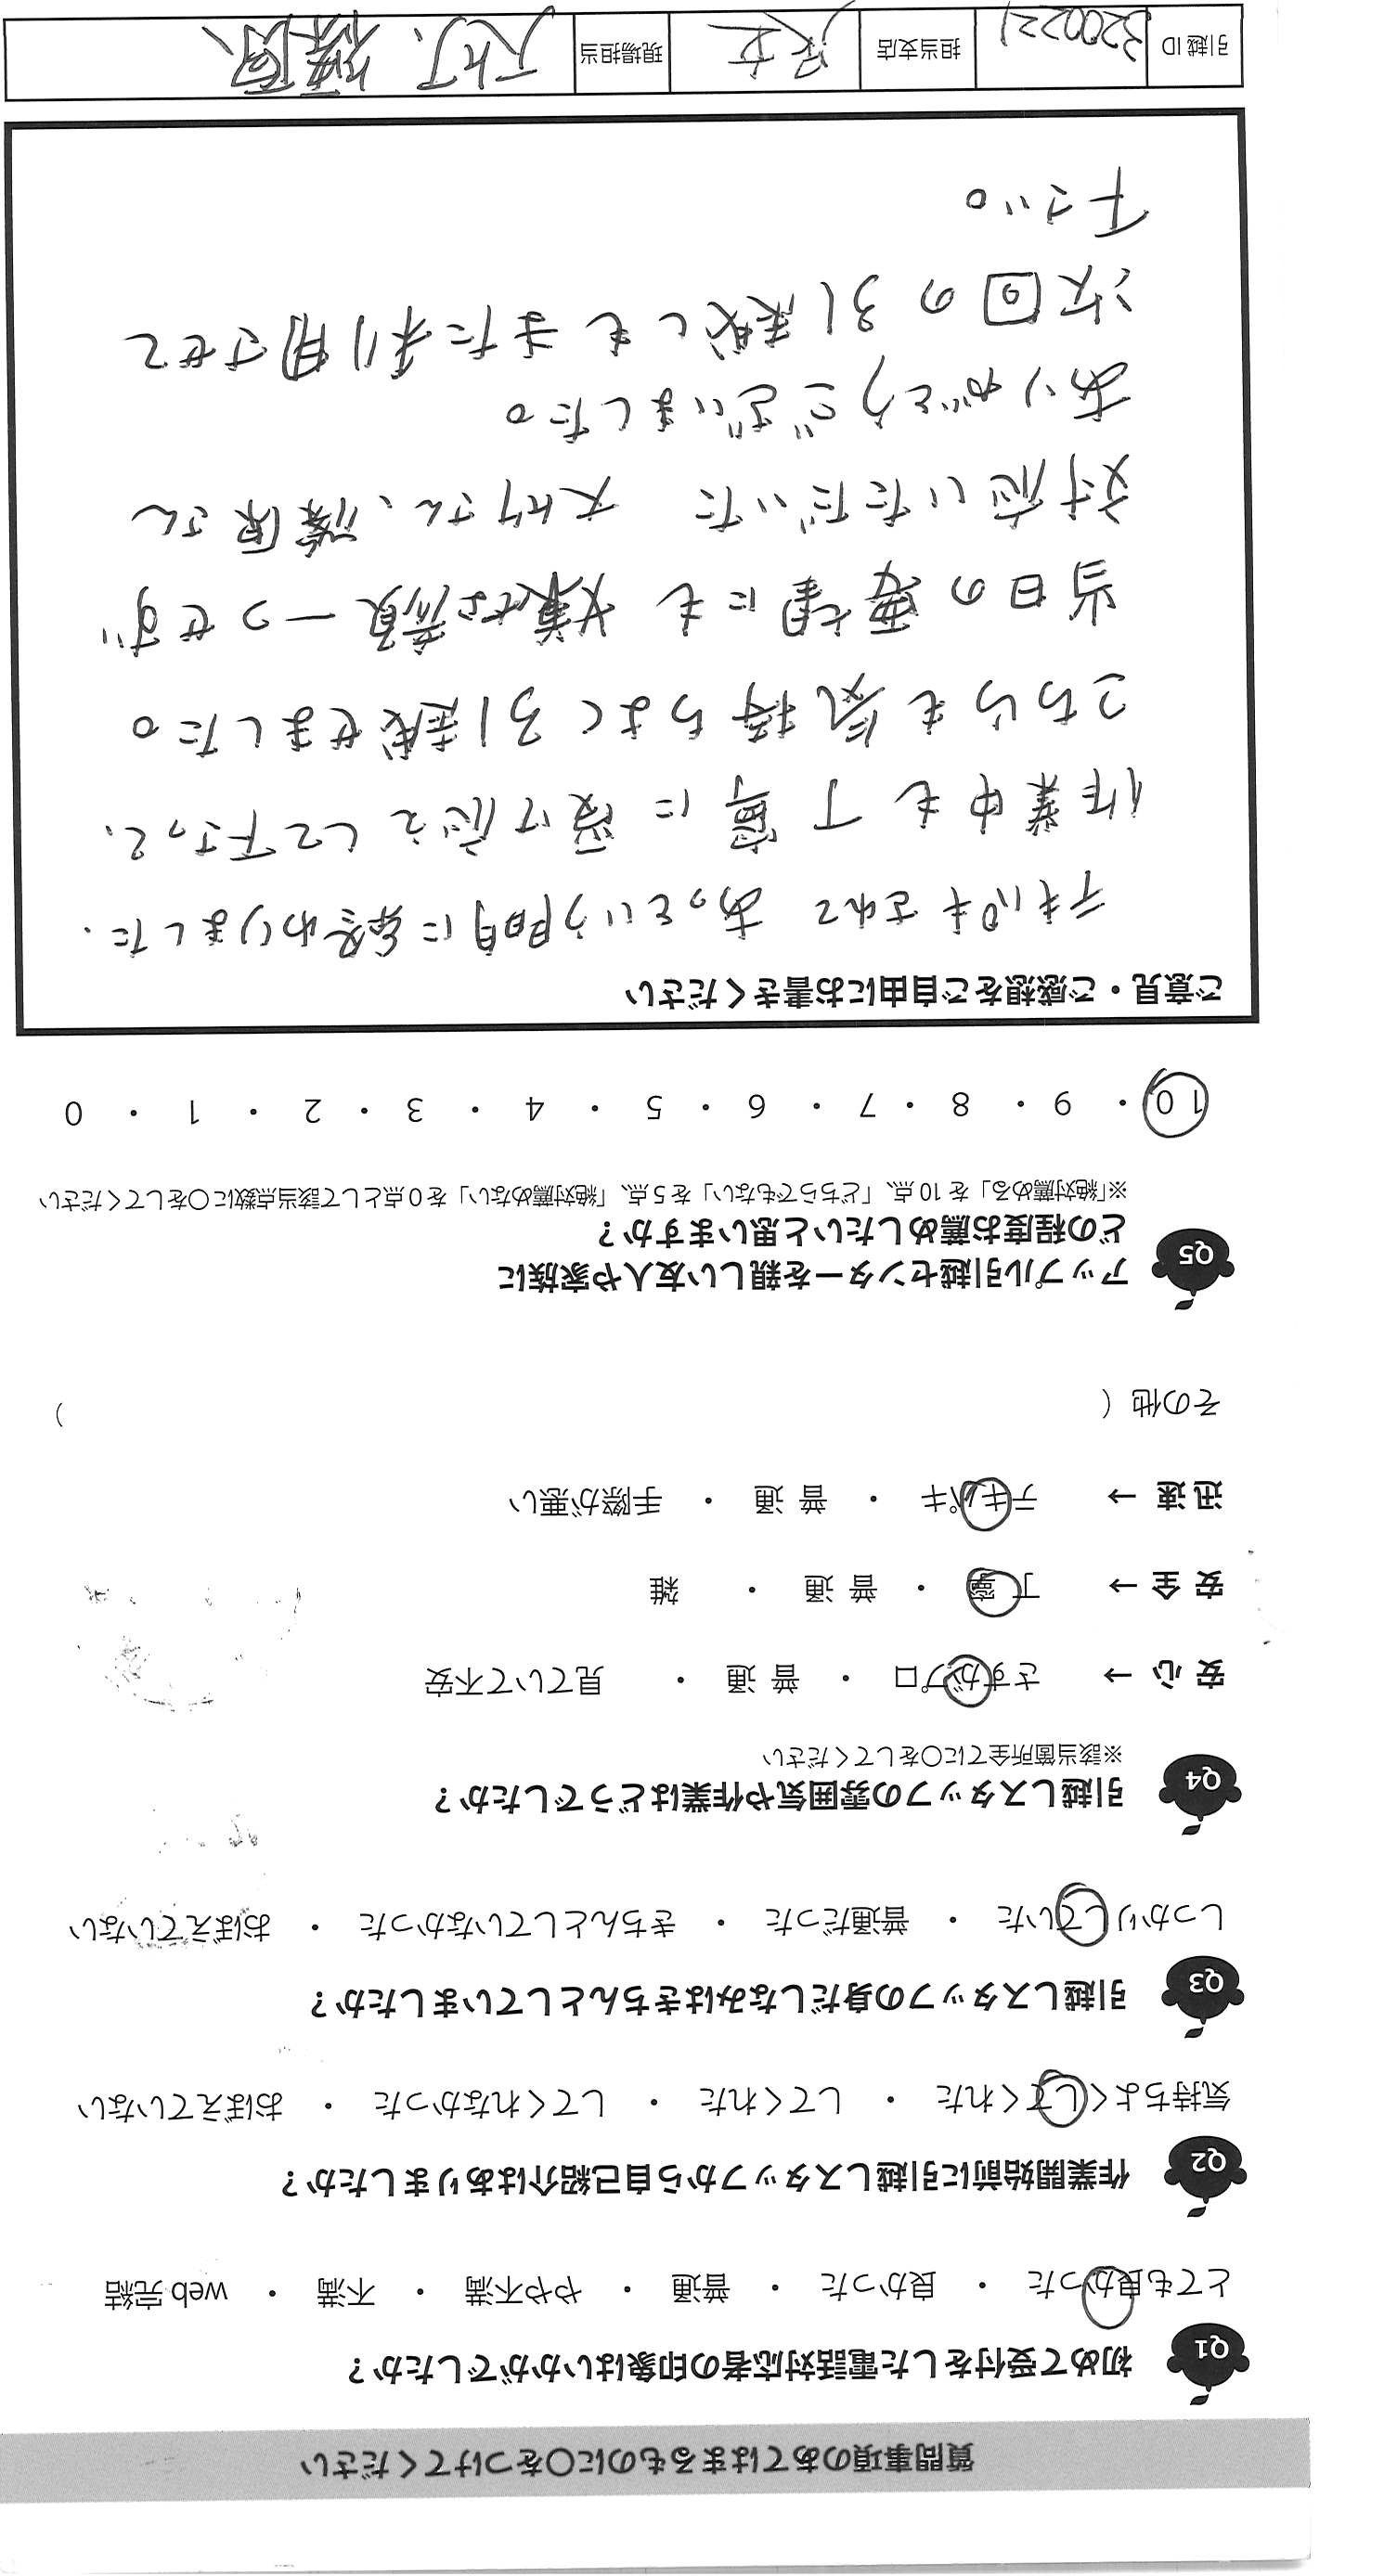 質問事項のあてはまるものに〇をつけてください
Q1 初めて受付をした電話対応者の印象はいかがでしたか？
とても良かった ・ 良かった ・ 普通 ・ やや不満 ・ 不満 ・ web 完結
Q2 作業開始前に引越しスタッフから自己紹介はありましたか？
気持ちよくしてくれた ・ してくれた ・ してくれなかった ・ おぼえていない
Q3 引越しスタッフの身だしなみはきちんとしていましたか？
しっかりしていた ・ 普通だった ・ きちんとしていなかった ・ おぼえていない
Q4 引越しスタッフの雰囲気や作業はどうでしたか？
※該当箇所全てに〇をしてください
安 心 → さすがプロ ・ 普 通 ・ 見ていて不安
安 全 → 丁 寧 ・ 普 通 ・ 雑
迅 速 → テキパキ ・ 普 通 ・ 手際が悪い
その他（ ）
Q5 アップル引越センターを親しい友人や家族に
どの程度お薦めしたいと思いますか？
※「絶対薦める」を 10 点、「どちらでもない」を 5 点、「絶対薦めない」を 0 点として該当点数に〇をしてください
10 ・ 9 ・ 8 ・ 7 ・ 6 ・ 5 ・ 4 ・ 3 ・ 2 ・ 1 ・ 0
ご意見・ご感想をご自由にお書きください
テキパキされて あっという間に終わりました.
作業中も丁寧に受け応えして下さって、
こちらも気持ちよく引越せました。
当日の要望にも嫌な顔一つせず
対応いただいた 大竹さん、篠原さん
ありがとうございました。
次回の引越しもまた利用させて
下さい。
引越 ID 3200221 担当支店 埼玉 現場担当 大竹、篠原